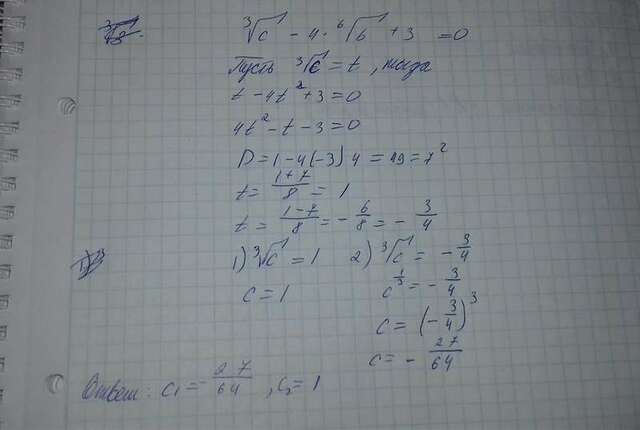 ∛c − 4·⁶√b + 3 = 0
Пусть ∛c = t, тогда
t − 4t² + 3 = 0
4t² − t − 3 = 0
D = 1 − 4(−3)4 = 49 = 7²
t = (1+7)/8 = 1
t = (1−7)/8 = −6/8 = −3/4
1) ∛c = 1
c = 1
2) ∛c = −3/4
c^(1/3) = −3/4
c = (−3/4)³
c = −27/64
Ответ: c₁ = −27/64, c₂ = 1